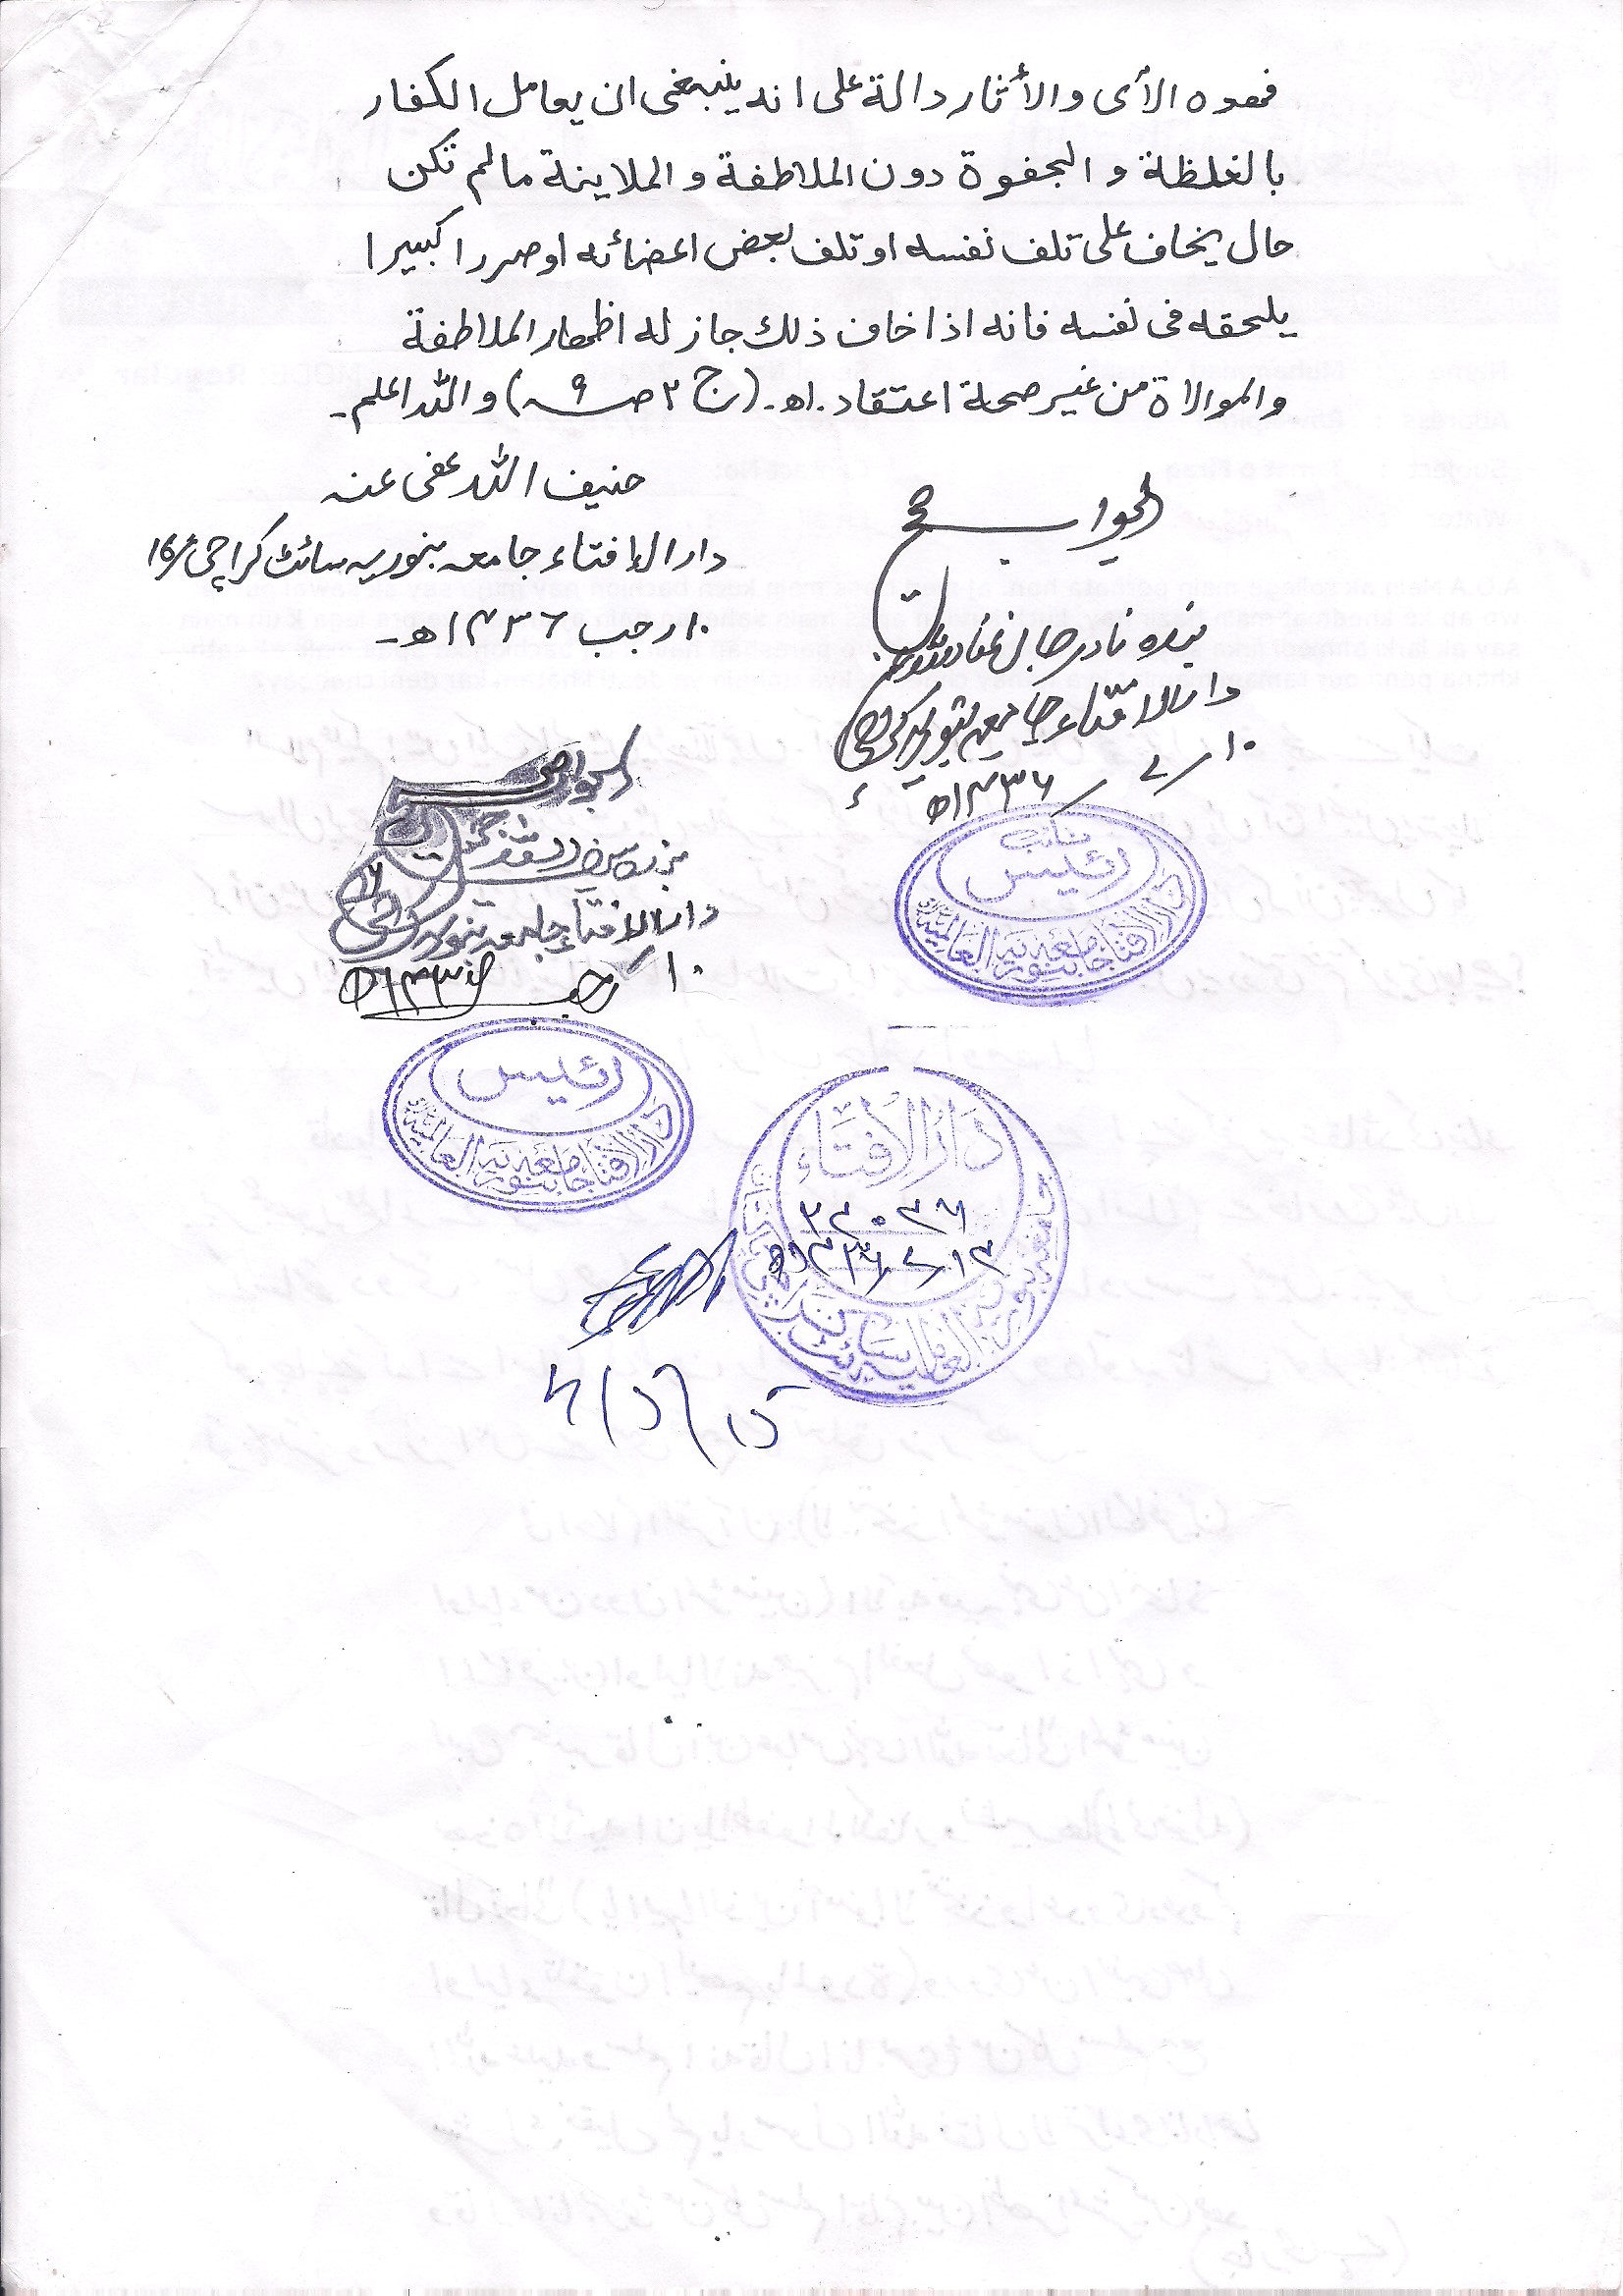 فهوه الأى والأثار دالة على انه ينبغى ان يعامل الكفار
بالغلظة و الجفوة دون الملاطفة و الملاينة مالم تكن
حال يخاف على تلف نفسه او تلف بعض اعضائه او ضررا كبيرا
يلحقه فى نفسه فانه اذا خاف ذلك جاز له اظهار الملاطفة
والموالاة من غير صحة اعتقاد ۔اھ۔ (ج ٢ ص ٩) و الله اعلم۔
حنيف الله عفى عنه
دار الافتاء جامعہ بنوریہ سائٹ کراچی ١٦
١٠ رجب ١٤٣٦ھ۔
الجواب صحيح
بندہ نادر جان
دار الافتاء جامعہ بنوریہ کراچی
١٠/٧/١٤٣٦ھ
نائب
رئیس
دار الافتاء جامعہ بنوریہ العالمیہ
الجواب صحيح
دار الافتاء جامعہ بنوریہ کراچی
١٠ رجب
رئیس
دار الافتاء جامعہ بنوریہ العالمیہ
دَارُ الْاِفْتَاء
جامعہ بنوریہ العالمیہ سائٹ
4/5/15